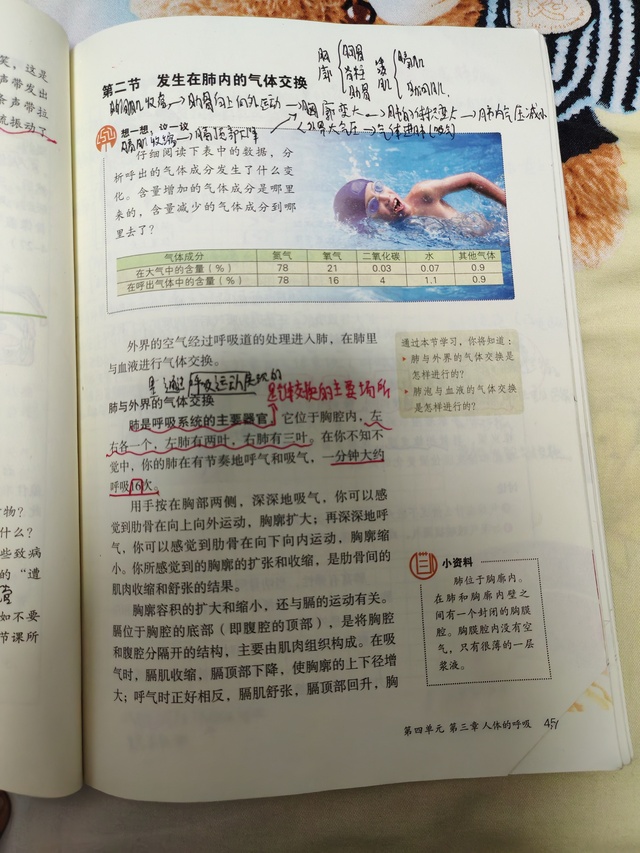 笑，这是
声带发出
条声带拉
流振动了
物？
什么？
些致病
的“遭
如不要
节课所
胸廓 胸骨 脊柱 肋骨
膈肌 肋间肌
第二节 发生在肺内的气体交换
肋间肌收缩→肋骨向上向外运动→胸廓变大→肺的体积变大→肺内气压减小
想一想，议一议
膈肌收缩→膈顶部下降
<外界大气压→气体进肺(吸气)
仔细阅读下表中的数据，分
析呼出的气体成分发生了什么变
化。含量增加的气体成分是哪里
来的，含量减少的气体成分到哪
里去了？
气体成分 氮气 氧气 二氧化碳 水 其他气体
在大气中的含量（%） 78 21 0.03 0.07 0.9
在呼出气体中的含量（%） 78 16 4 1.1 0.9
外界的空气经过呼吸道的处理进入肺，在肺里
与血液进行气体交换。
通过本节学习，你将知道：
• 肺与外界的气体交换是
怎样进行的？
• 肺泡与血液的气体交换
是怎样进行的？
是通过呼吸运动实现的
肺与外界的气体交换
是气体交换的主要场所
肺是呼吸系统的主要器官，它位于胸腔内，左
右各一个，左肺有两叶，右肺有三叶。在你不知不
觉中，你的肺在有节奏地呼气和吸气，一分钟大约
呼吸16次。
用手按在胸部两侧，深深地吸气，你可以感
觉到肋骨在向上向外运动，胸廓扩大；再深深地呼
气，你可以感觉到肋骨在向下向内运动，胸廓缩
小。你所感觉到的胸廓的扩张和收缩，是肋骨间的
肌肉收缩和舒张的结果。
胸廓容积的扩大和缩小，还与膈的运动有关。
膈位于胸腔的底部（即腹腔的顶部），是将胸腔
和腹腔分隔开的结构，主要由肌肉组织构成。在吸
气时，膈肌收缩，膈顶部下降，使胸廓的上下径增
大；呼气时正好相反，膈肌舒张，膈顶部回升，胸
小资料
肺位于胸廓内。
在肺和胸廓内壁之
间有一个封闭的胸膜
腔。胸膜腔内没有空
气，只有很薄的一层
浆液。
第四单元 第三章 人体的呼吸 45